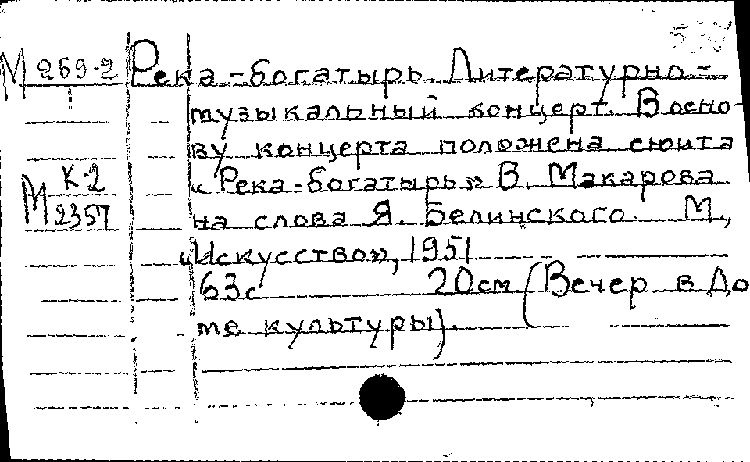 М 269-2 Река-богатырь. Литературно-
музыкальный концерт. В осно-
ву концерта положена сюита
К-2 «Река-богатырь» В. Макарова
М 2357 на слова Я. Белинского. М.,
«Искусство», 1951
63с 20см (Вечер в До
ме культуры).